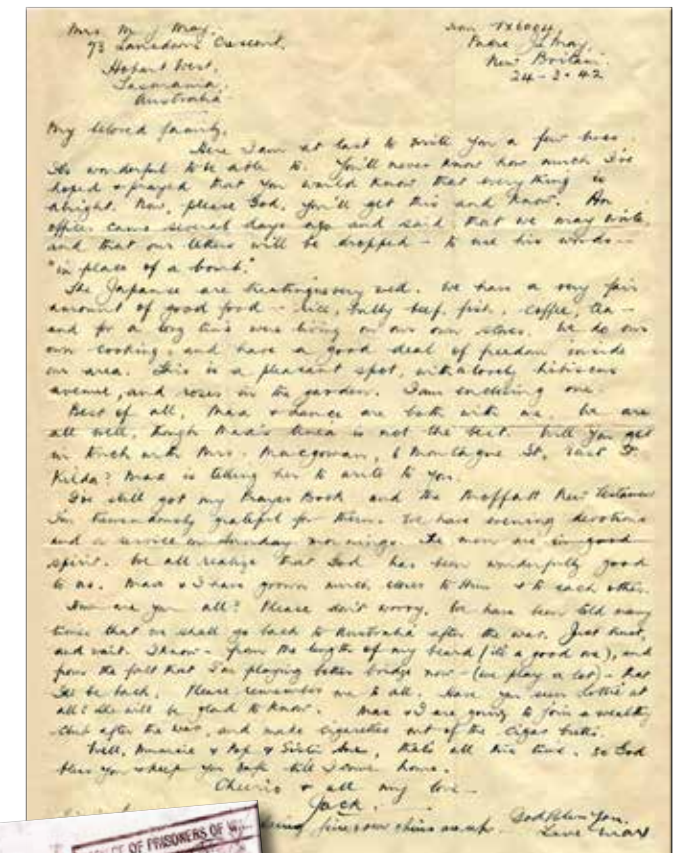 Mrs. M. J. May.
73 Lansdowne Crescent.
Hobart West.
Tasmania.
Australia.
from TX6004
Padre J. L. May,
New Britain.
24-3-42
My beloved family,
Here I am at last to write you a few lines.
Its wonderful to be able to. You'll never know how much I've
hoped & prayed that you would know that everything is
alright. Now, please God, you'll get this and know. An
officer came several days ago and said that we may write,
and that our letters will be dropped - to use his words -
"in place of a bomb."
The Japanese are treating us very well. We have a very fair
amount of good food - rice, bully beef, fish, coffee, tea -
and for a long time were living on our own stores. We do our
own cooking, and have a good deal of freedom inside
our area. This is a pleasant spot, with a lovely hibiscus
avenue, and roses in the garden. I am enclosing one.
Best of all, Max & are both with me. We are
all well, though Max's is not the best. Will you get
in touch with Mrs. Macgowan, 6 Montague St, East St.
Kilda? Max is telling her to write to you.
I've still got my Prayer Book and the Moffatt New Testament
I'm tremendously grateful for them. We have evening devotions
and a service on Sunday mornings. The men are in good
spirit. We all realize that God has been wonderfully good
to us. Max & I have grown much closer to Him & to each other.
How are you all? Please don't worry. We have been told many
times that we shall go back to Australia after the war. Just trust,
and wait. I know - from the length of my beard (it's a good one), and
from the fact that I'm playing better bridge now - (we play a lot) - that
I'll be back. Please remember me to all. Have you seen at
all? She will be glad to know. Max & I are going to join a wealthy
club after the war, and make cigarettes out of the cigar butts.
Well, & Pop & Sister that's all this time. So God
bless you & keep you safe till I come home.
Cheerio & all my love -
Jack.
God bless you.
Love Max
OF PRISONERS OF